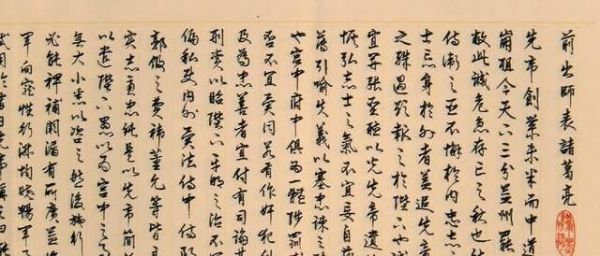 前出師表諸葛亮
先帝創業未半而中道
崩殂今天下三分益州罷
故此誠危急存亡之秋也然
侍衛之臣不懈於內忠志之
士忘身於外者蓋追先帝
之殊遇欲報之於陛下也誠
宜開張聖聽以光先帝遺
恢弘志士之氣不宜妄自
薄引喻失義以塞忠諫之路
也宮中府中俱為一體陟罰
否不宜異同若有作奸犯科
及為忠善者宜付有司論其
刑賞以昭陛下平明之治不
偏私使內外異法侍中侍郎
郭攸之費禕董允等皆
實志慮忠純是以先帝簡
以遺陛下愚以為宮中之事
無大小悉以咨之然後施行
必能裨補闕漏有所廣益
軍向寵性行淑均曉暢軍
試用於昔日先帝稱之曰能